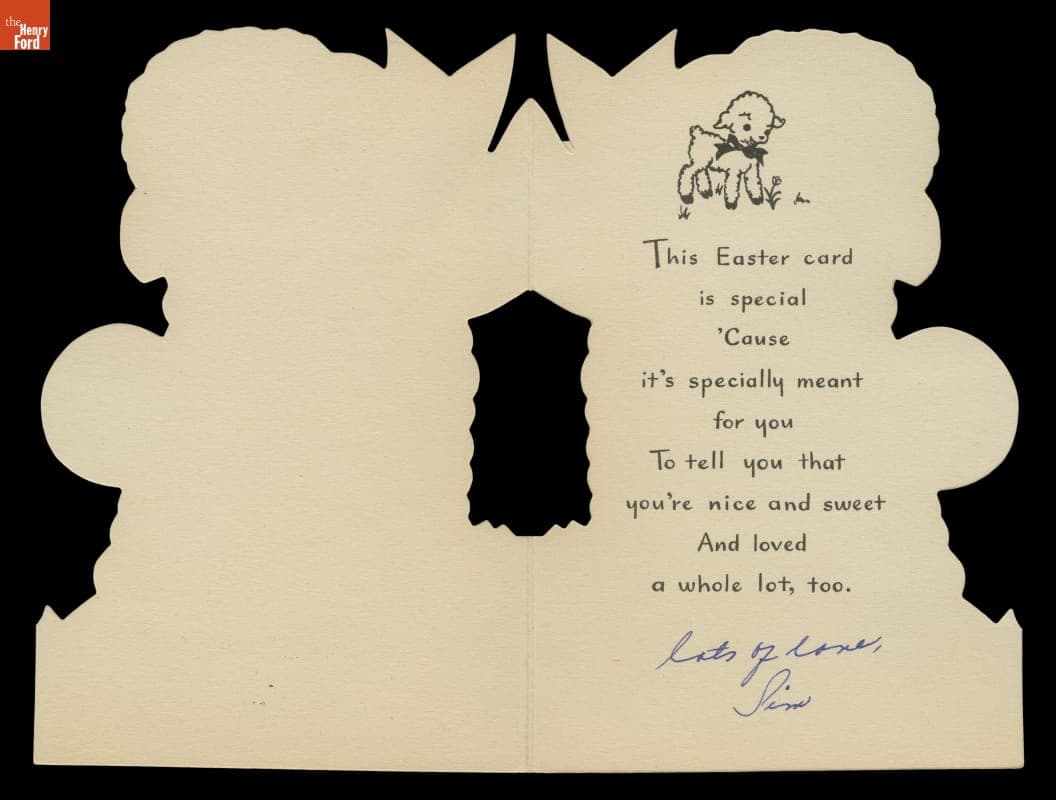 the
Henry
Ford
This Easter card
is special
'Cause
it's specially meant
for you
To tell you that
you're nice and sweet
And loved
a whole lot, too.
lots of love,